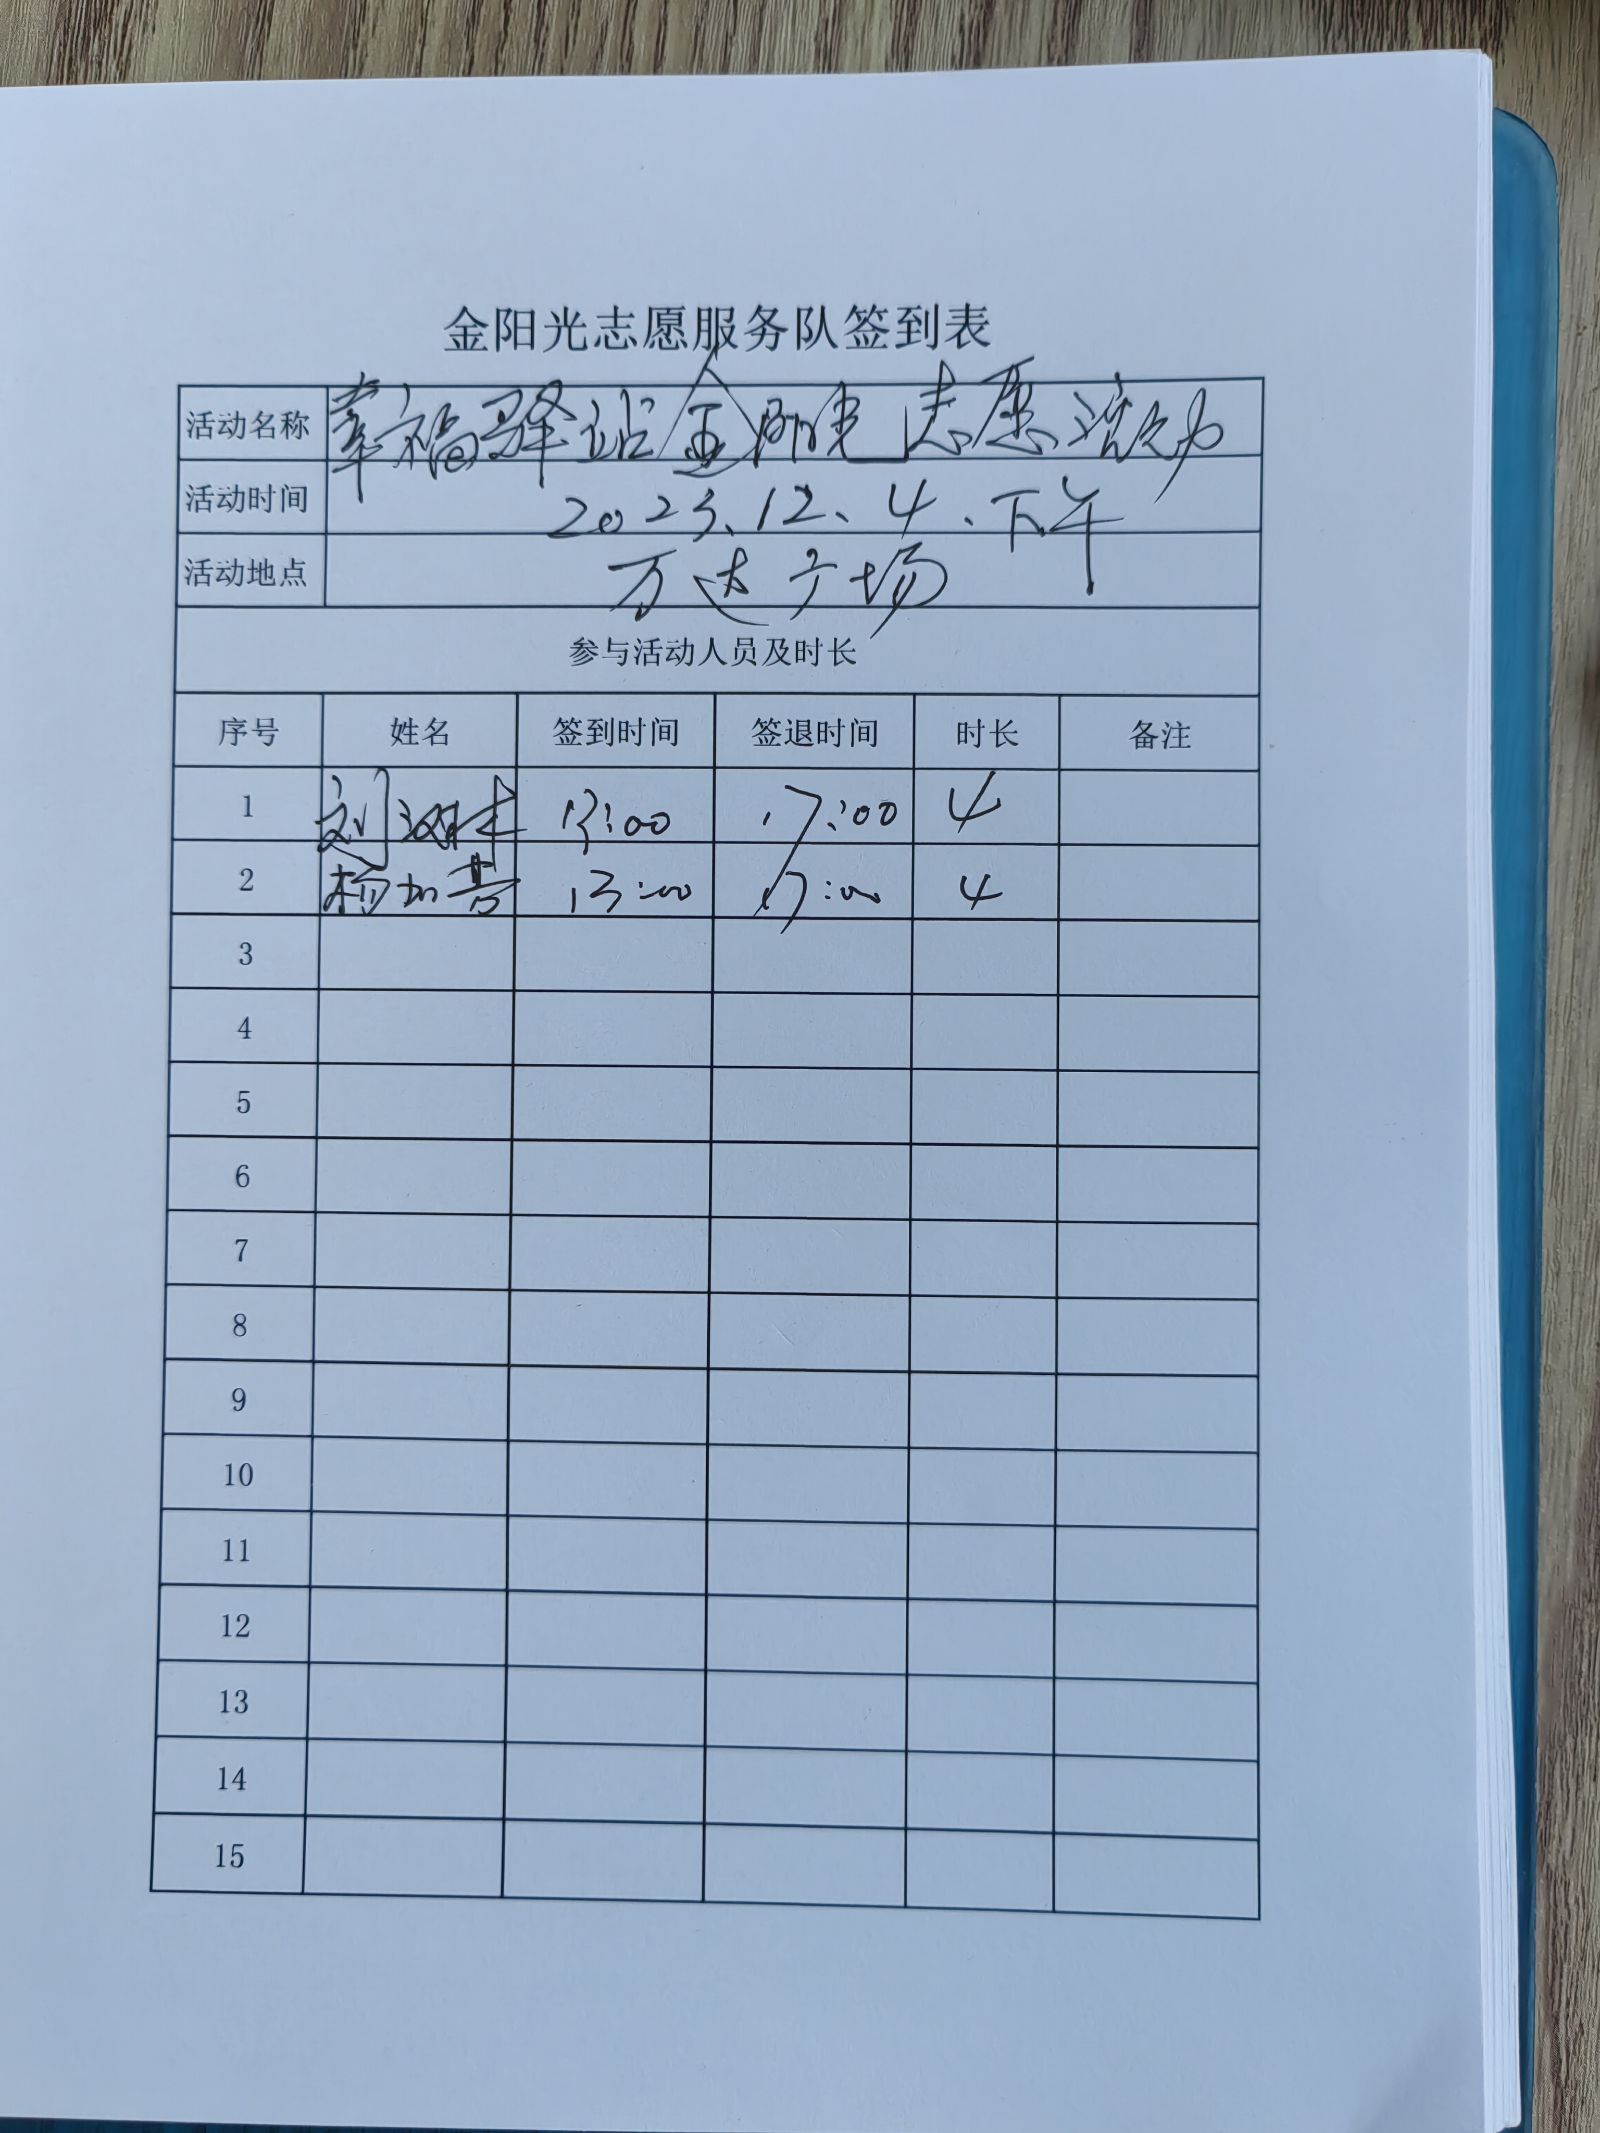 金阳光志愿服务队签到表
活动名称 幸福驿站金阳光志愿活动
活动时间 2023、12、4、下午
活动地点 万达广场
参与活动人员及时长
序号 姓名 签到时间 签退时间 时长 备注
1 刘 13:00 17:00 4
2 杨加 13:00 17:00 4
3
4
5
6
7
8
9
10
11
12
13
14
15